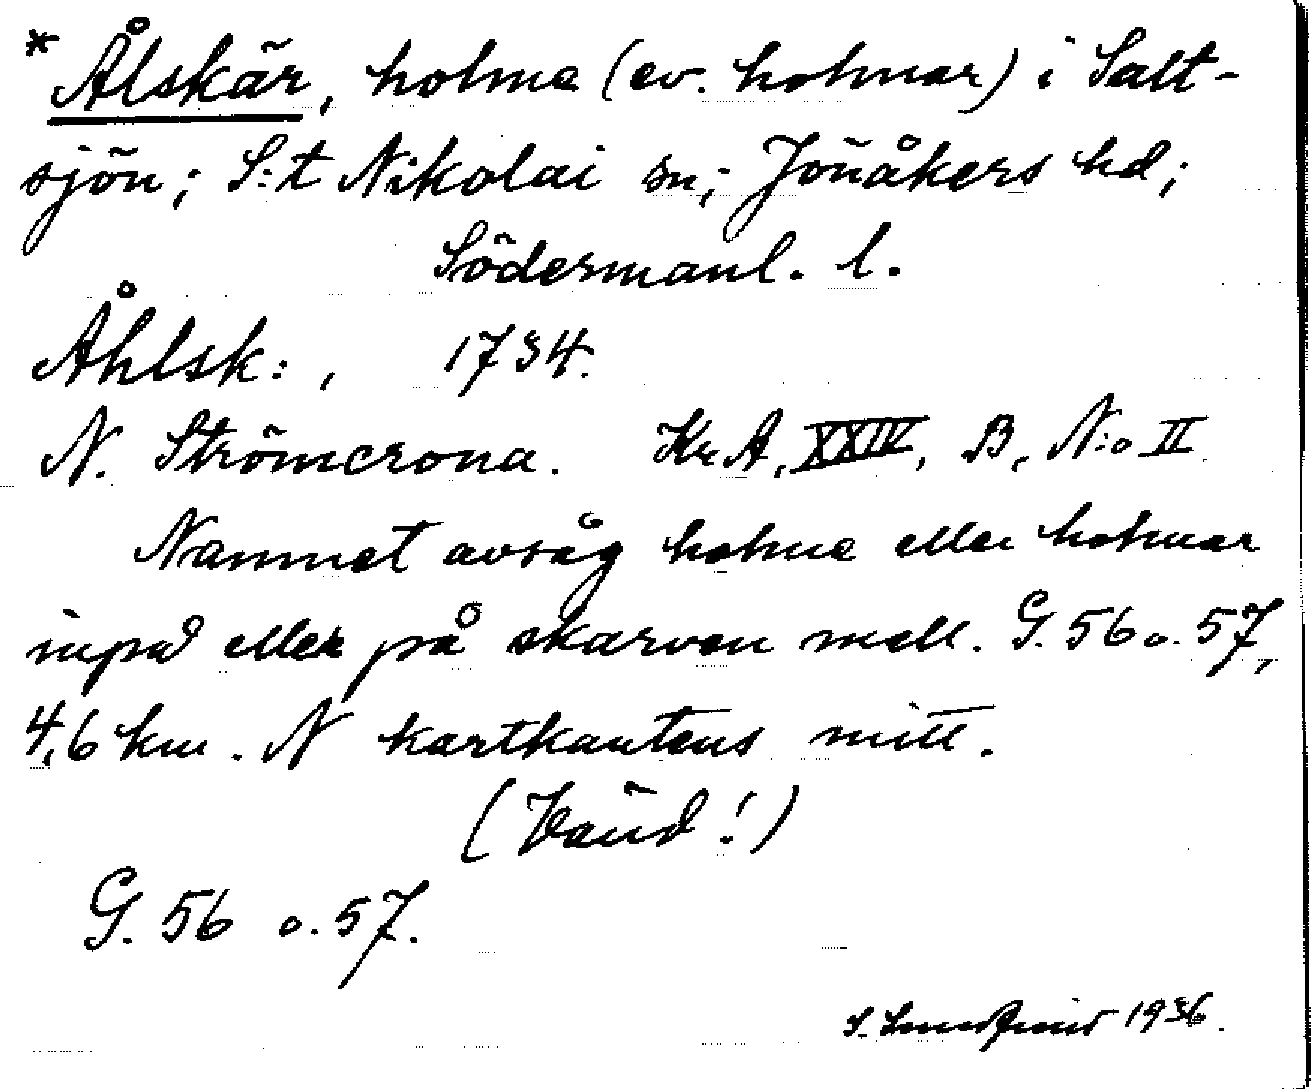 * Ålskär, holme (ev. holmar) i Salt-
sjön; S:t Nikolai sn; Jönåkers hd;
Södermanl. l.
Åhlsk:, 1734.
N. Strömcrona. Kr A, XXIV, B, N:o II
Namnet avsåg holme eller holmar
invid eller på skarven mell. G. 56 o. 57,
4,6 km. N kartkantens mitt.
(Vänd!)
G. 56 o. 57.
S. 1936.